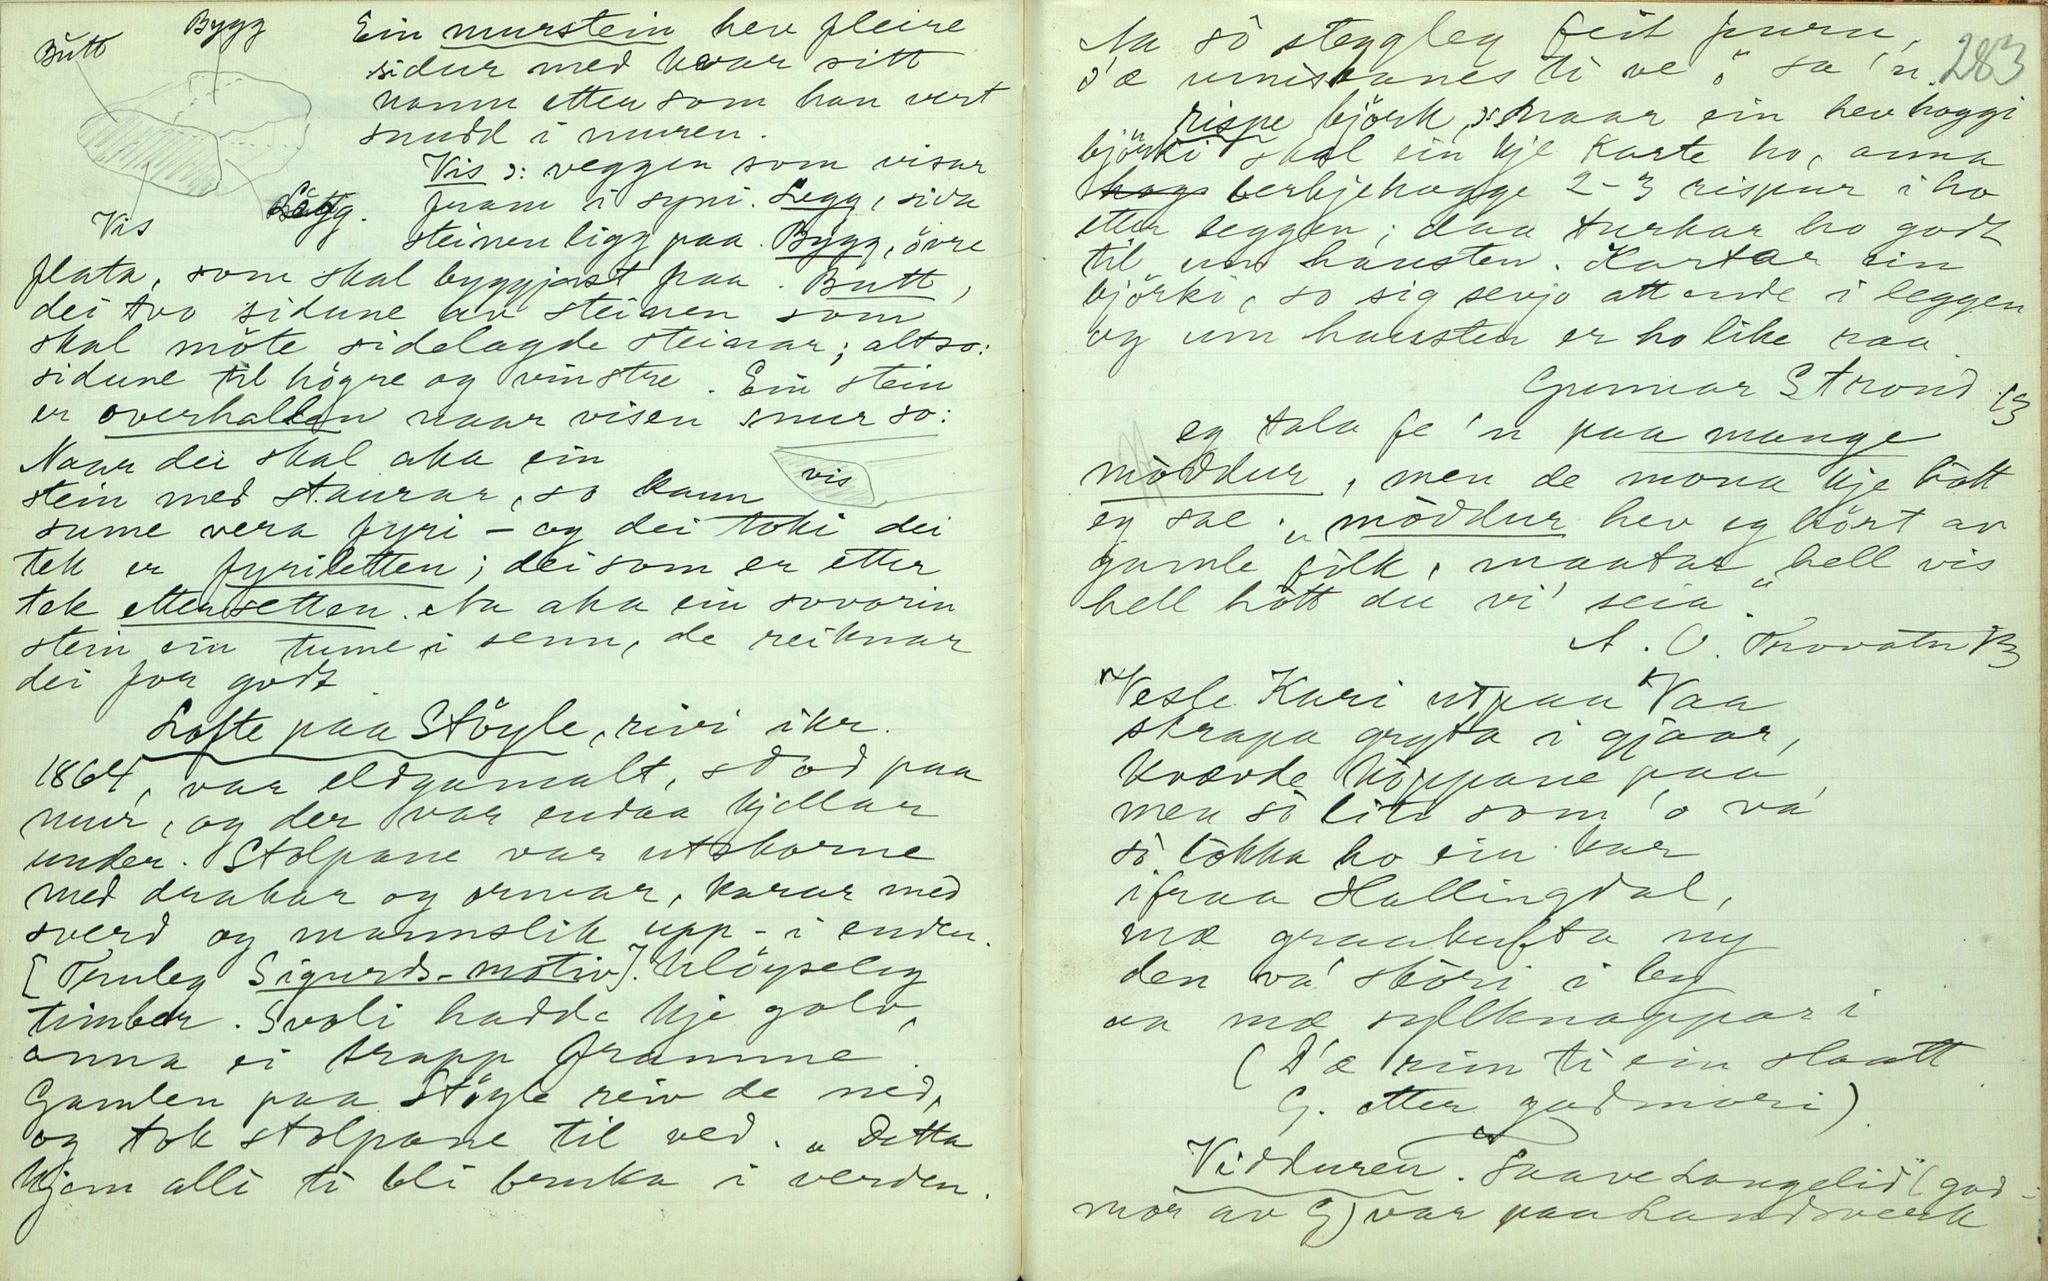 Butt
Bygg
Vis
Lägg.
Ein murstein hev fleire
sidur med kvar sitt
namn etter som han vert
snudd i muren.
Vis ɔ: veggen som visar
fram i syni. Legg, sida
steinen ligg paa. Bygg, övre
flata, som skal byggjast paa. Butt,
dei tvo sidune av steinen som
skal möte sidelagde steinar; altso:
sidune til högre og vinstre. Ein stein
er overhallen naar visen snur so:
vis
Naar dei skal aka ein
stein med staurar, so kann
sume vera fyri - og dei toki dei
tek er fyrisetten; dei som er etter
tek ettersetten. Aa aka ein sovorin
stein ein tume i senn, de reiknar
dei for godt.
Lofte paa Stöyle, rivi ikr.
1864, var eldgamalt, stod paa
mur, og der var endaa kjellar
under. Stolpane var utskorne
med drakar og ormar, karar med
sverd og mannslik upp-i enden.
[Truleg Sigurds-motiv]. Klöyseleg
timber. Svali hadde kje golv,
anna ei trapp framme.
Gamlen paa Stöyle reiv de ned,
og tok stolpane til ved. „Detta
kjem alli ti bli bruka i verden.
283
Aa so steggleg feit furu,
d'æ umistanes ti ve", sa 'n.
rispe björk, ɔ: naar ein hev hoggi
björki skal ein kje karte ho, anna
berkjehogge 2-3 rispur i ho
etter leggen; daa turkar ho godt
til um hausten. Kartar ein
björki, so sig sevjo att ende i leggen
og um hausten er ho like raa.
Gunnar Strond. 13
eg tala fe 'n paa mange
möddur, men de mona kje hott
eg sae. „möddur hev eg hört av
gamle folk, maatar hell vis
hell hott du vi' seia".
A. O. Trovatn 13
"Vesle Kari utpaa Vaa
skrapa gryta i gjaar,
kvævde köppane paa,
men so liti som 'o va'
so lokka ho ein kar
ifraa Hallingdal,
mæ graakufta ny
den va' skori i by
aa mæ syllknappar i
(D'æ rim ti ein slaatt
G. etter godmori)
Vidduren. Saave Langelid" (god-
mor av G) var paa Landsverk